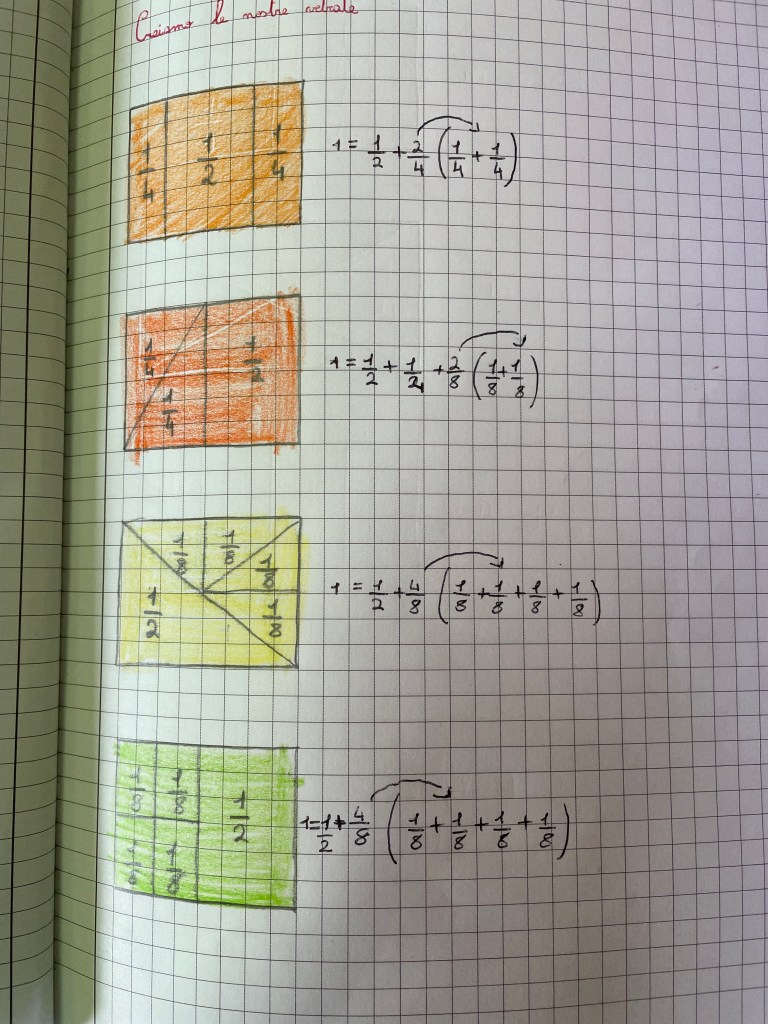 Creiamo le nostre vetrate
1/4 1/2 1/4 1 = 1/2 + 2/4 (1/4 + 1/4)
1/4 1/4 1/2 1 = 1/2 + 1/4 + 2/8 (1/8 + 1/8)
1/2 1/8 1/8 1/8 1/8 1 = 1/2 + 4/8 (1/8 + 1/8 + 1/8 + 1/8)
1/8 1/8 1/8 1/8 1/2 1 = 1/2 + 4/8 (1/8 + 1/8 + 1/8 + 1/8)